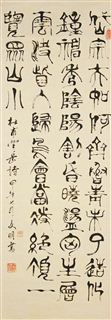 岱宗夫如何齊魯青未了造化
鐘神秀陰陽割昏曉盪胸生層
雲決眥入歸鳥會當凌絕頂一
覽眾山小
杜甫望岳詩